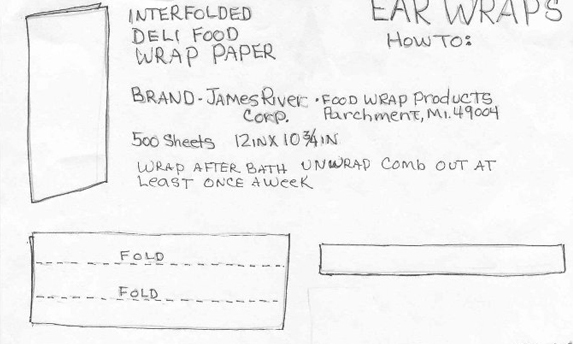 EAR WRAPS
HOW TO:
INTERFOLDED
DELI FOOD
WRAP PAPER
BRAND-JAMES RIVER CORP. • FOOD WRAP PRODUCTS
PARCHMENT, MI. 49004
500 SHEETS 12IN X 10 3/4 IN
WRAP AFTER BATH UNWRAP COMB OUT AT
LEAST ONCE A WEEK
FOLD
FOLD